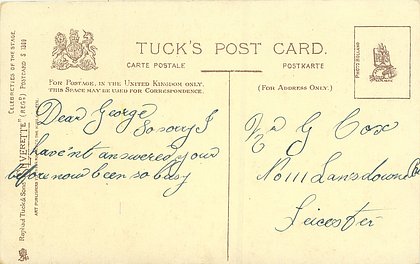 TUCK'S POST CARD.
CARTE POSTALE
POSTKARTE
FOR POSTAGE, IN THE UNITED KINGDOM ONLY,
THIS SPACE MAY BE USED FOR CORRESPONDENCE.
(FOR ADDRESS ONLY.)
CELEBRITIES OF THE STAGE.
"SILVERETTE" (REGD.) POSTCARD S 1389
Raphael Tuck & Sons'
Dear George
So sorry I
haven't answered your
before now been so busy
Mr G Cox
No 111 Lansdowne
Leicester